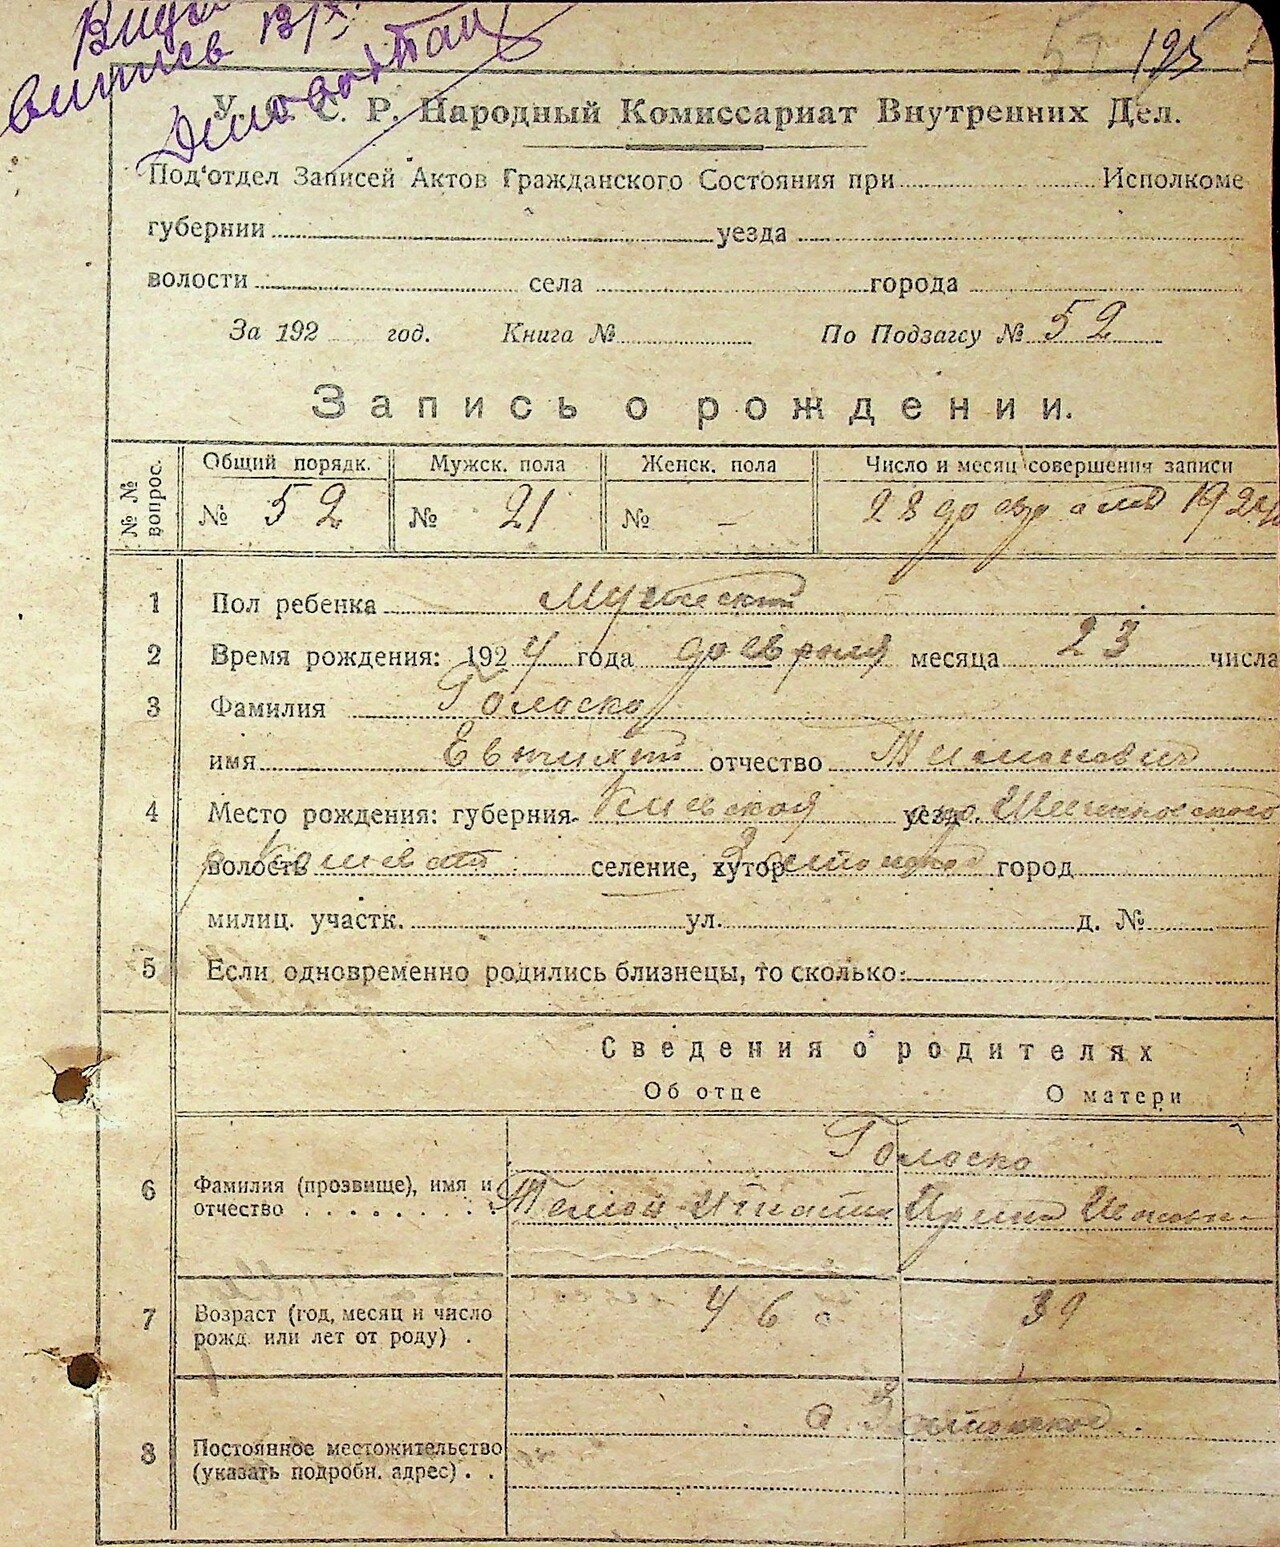 195
У. С. С. Р. Народный Комиссариат Внутренних Дел.
Под'отдел Записей Актов Гражданского Состояния при Исполкоме
губернии уезда
волости села города
За 192 год. Книга № По Подзагсу № 52
Запись о рождении.
№ № вопрос. Общий порядк. Мужск. пола Женск. пола Число и месяц совершения записи
№ 52 № 21 № – 28
1 Пол ребенка Мужеский
2 Время рождения: 1924 года февраля месяца 23 числа
3 Фамилия Голоско
имя отчество
4 Место рождения: губерния Киевская уезд.
волость селение, хутор город
милиц. участк. ул. д. №
5 Если одновременно родились близнецы, то сколько:
Сведения о родителях
Об отце О матери
Голоско
6 Фамилия (прозвище), имя и
отчество Ирина
7 Возраст (год, месяц и число 46 39
рожд. или лет от роду) .
8 Постоянное местожительство
(указать подробн. адрес) . .